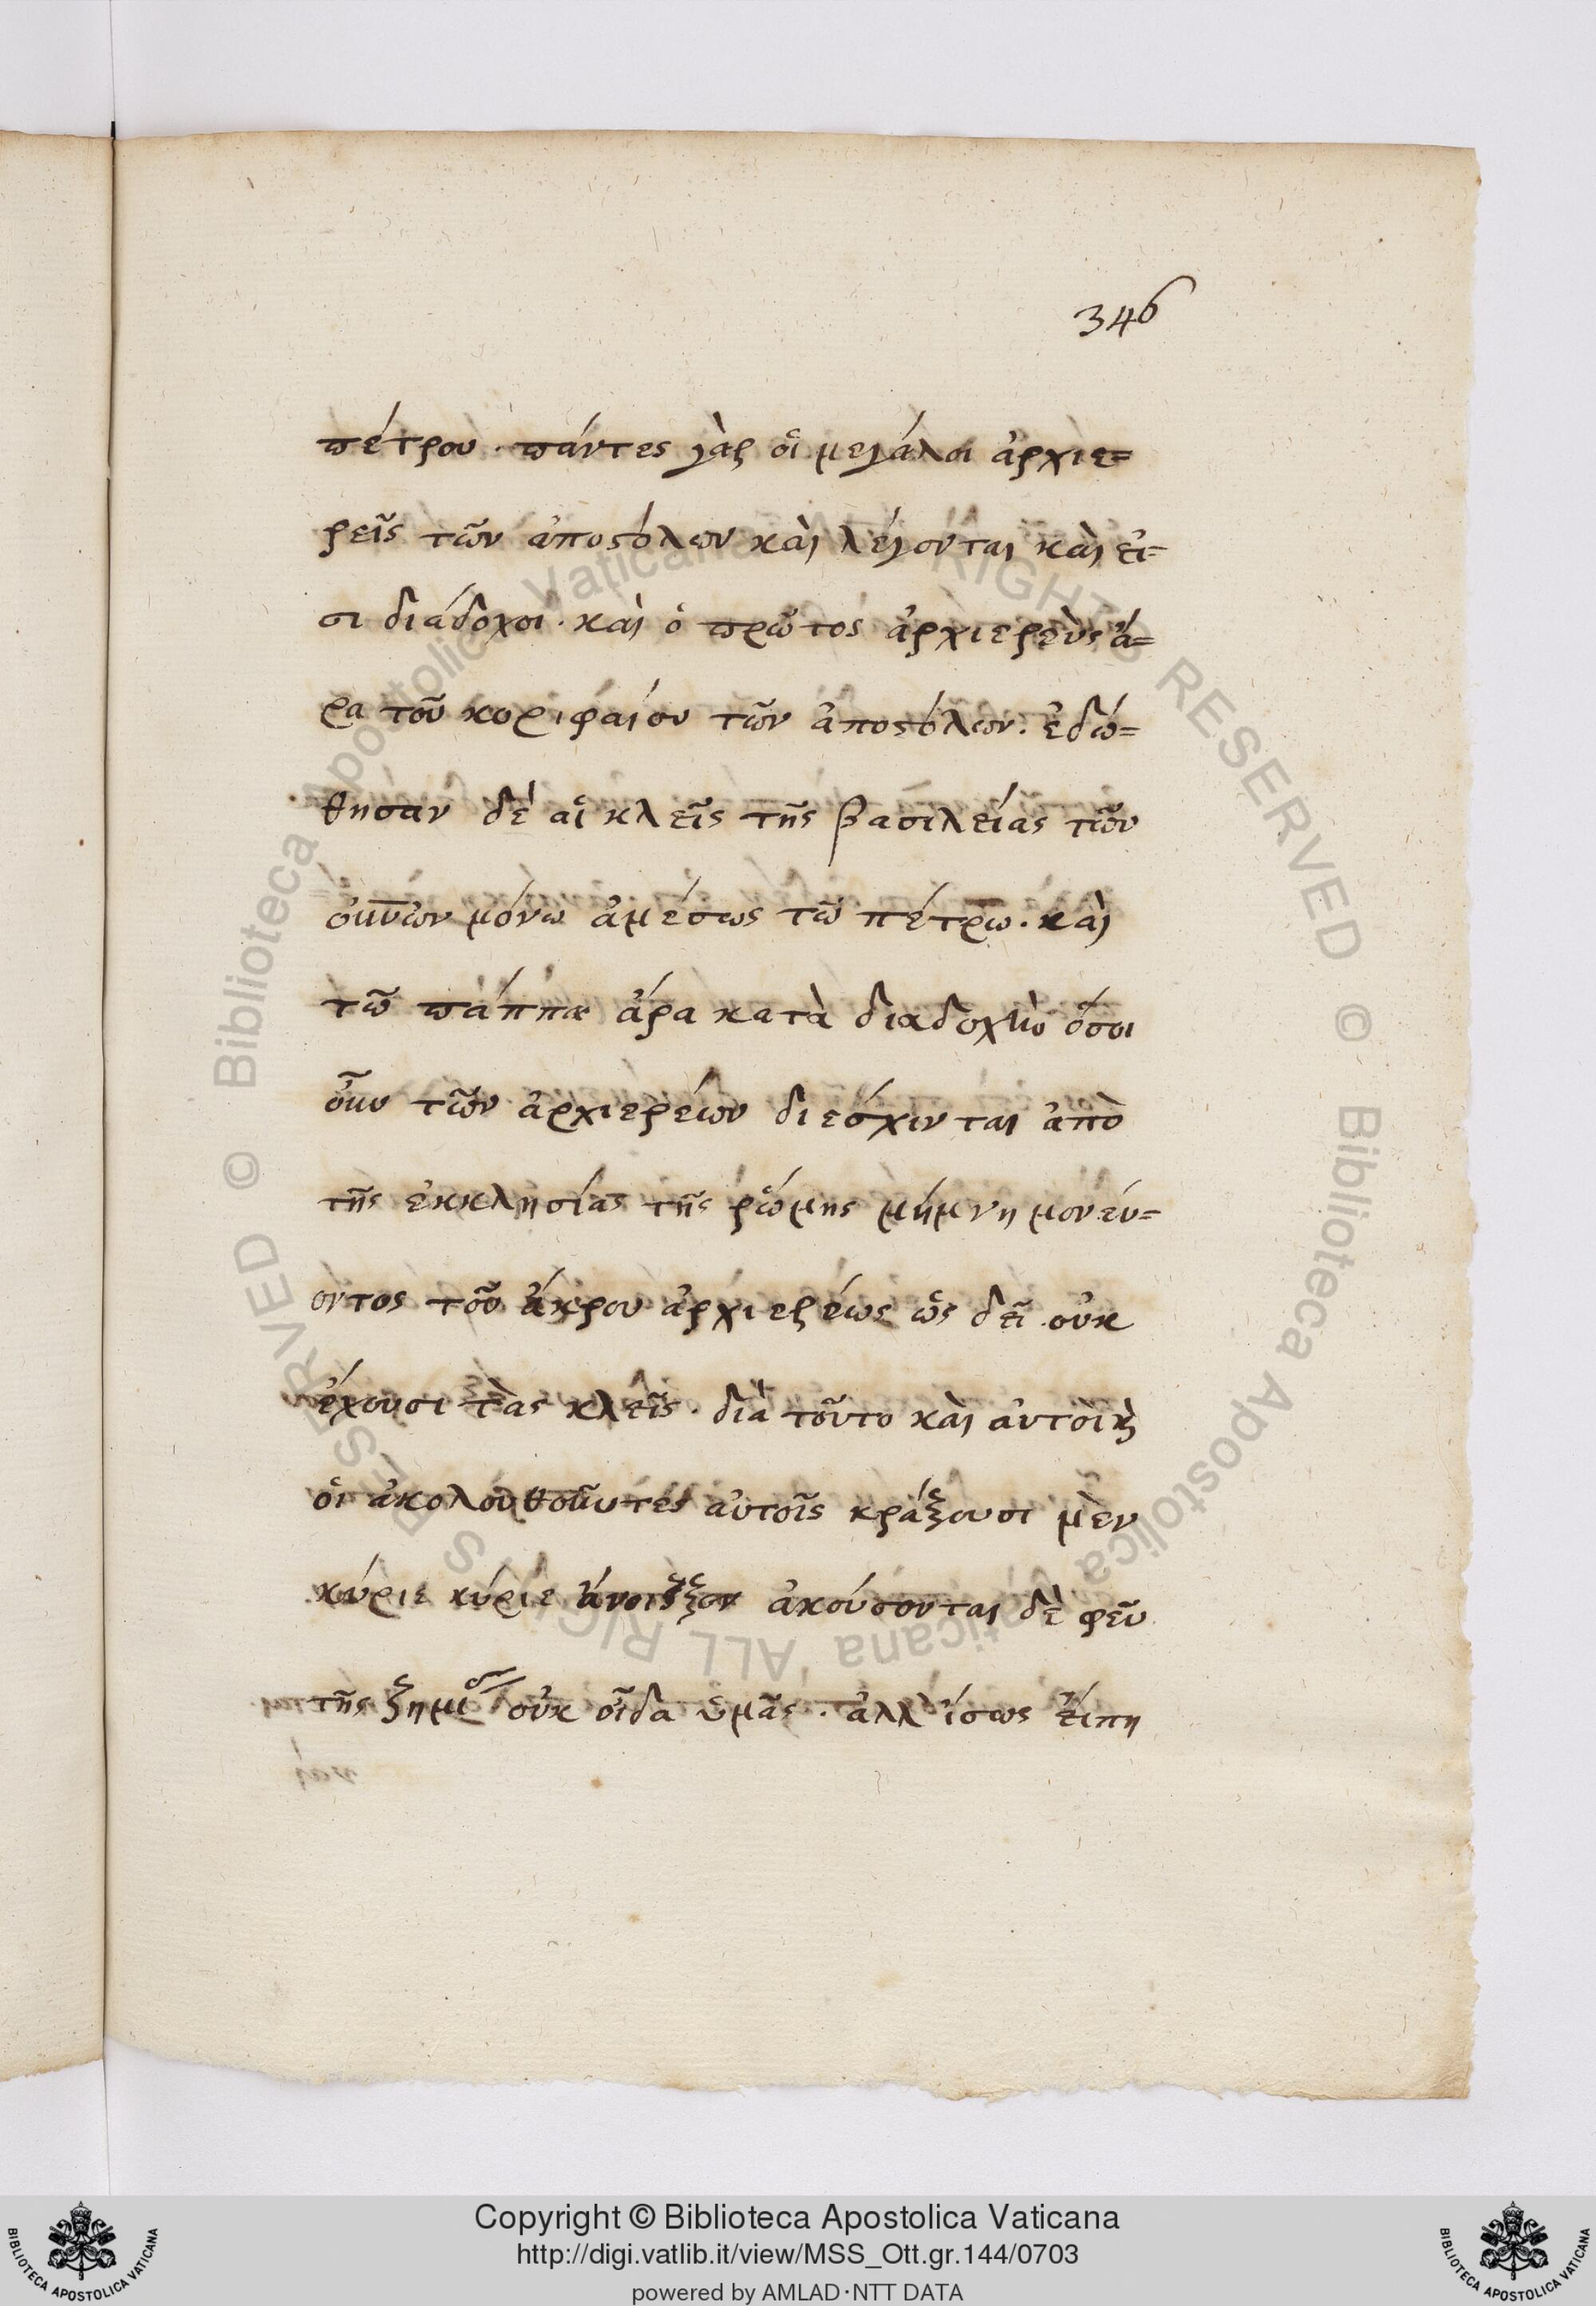 346
πέτρου. πάντες γὰρ οἱ μεγάλοι ἀρχιε=
ρεῖς τῶν ἀποστόλων καὶ λέγονται καὶ εἰ=
σι διάδοχοι. καὶ ὁ πρῶτος ἀρχιερεὺς ἄ=
ρα τοῦ κοριφαίου τῶν ἀποστόλων. ἐδώ=
θησαν δὲ αἱ κλεῖς τῆς βασιλείας τῶν
οὐνῶν μόνω ἀμέσως τῶ πέτρω. καὶ
τῶ πάππα ἄρα κατὰ διαδοχὴν ὅσοι
οὖν τῶν ἀρχιερέων διεσχινται ἀπὸ
τῆς ἐκκλησίας τῆς ῥώμης μήμνημονεύ=
οντος τοῦ ἄκρου ἀρχιερέως ὡς δεῖ οὐκ
ἔχουσι τὰς κλεῖς. διὰ τοῦτο καὶ ἀυτοὶ καὶ
οἱ ἀκολουθοῦντες αὐτοῖς κράξουσι μὲν
κύριε κύριε ἄνοιξον ἀκούσονται δὲ φεῦ
τῆς ζημι οὐκ οἶδα ὑμᾶς. ἀλλ' ἴσως εἴπη
Copyright © Biblioteca Apostolica Vaticana
http://digi.vatlib.it/view/MSS_Ott.gr.144/0703
powered by AMLAD·NTT DATA